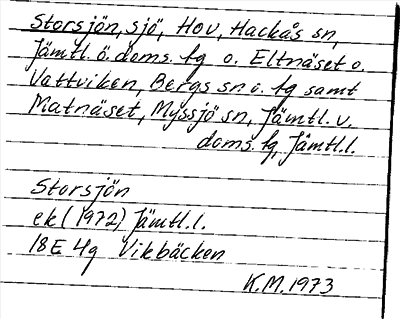 Storsjön, sjö, Hov, Hackås sn,
Jämtl. ö. doms. fg o. Eltnäset o.
Vattviken, Bergs sn o. fg samt
Matnäset, Myssjö sn, Jämtl. v.
doms. fg, Jämtl.l.
Storsjön
ek (1972) Jämtl.l.
18E 4g Vikbäcken
K.M. 1973